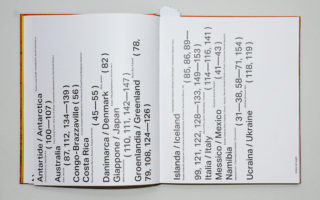 Antartide / Antarctica
( 100—107 )
Australia
( 87, 112, 134—139 )
Congo-Brazzaville ( 56 )
Costa Rica
( 45—55 )
Danimarca / Denmark ( 82 )
Giappone / Japan
( 110, 111, 142—147 )
Groenlandia / Greenland ( 78,
79, 108, 124—126 )
Islanda / Iceland ( 85, 86, 89—
99, 121, 122, 128—133, 149—153 )
Italia / Italy ( 114—116, 141 )
Messico / Mexico ( 41—43 )
Namibia
( 31—38, 58—71, 154 )
Ucraina / Ukraine ( 118, 119 )